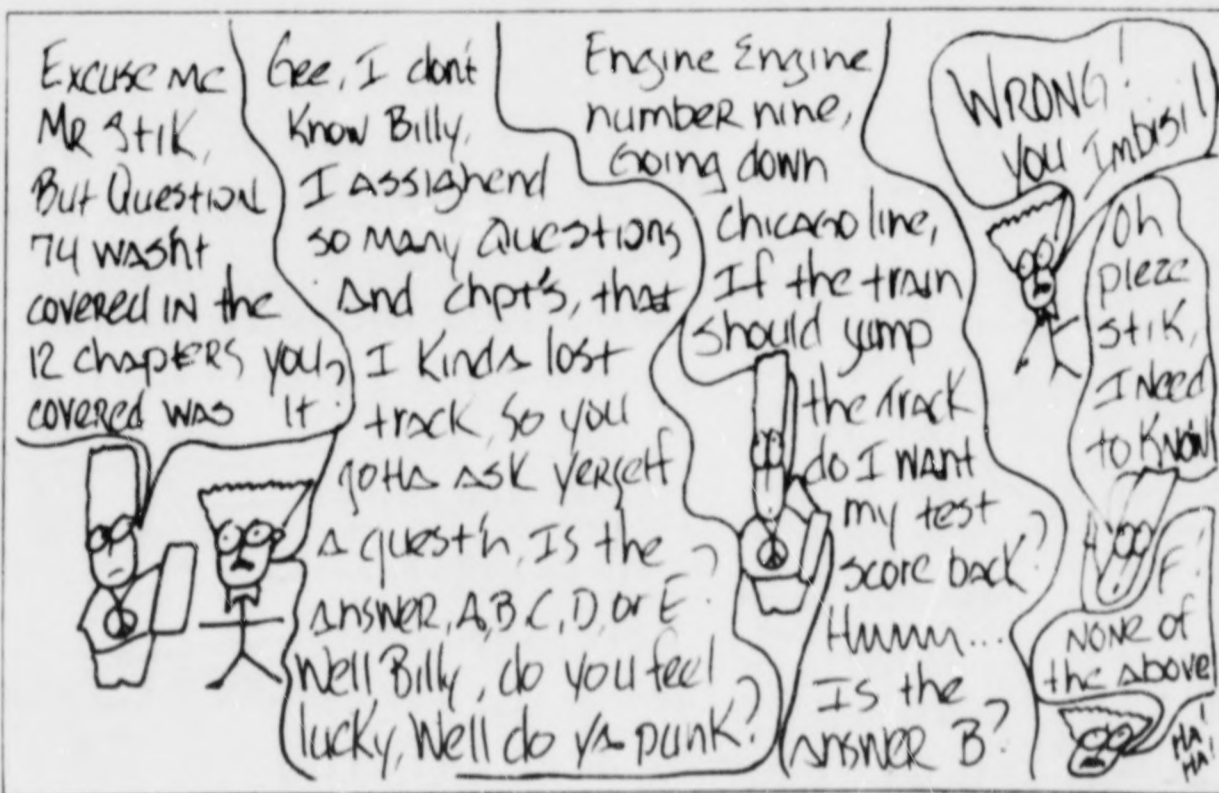 Excuse me
Mr Stik,
But Question
74 wasn't
covered in the
12 chapters you
covered was it?
Gee, I don't
Know Billy,
I assighend
so many Questions
and chpt's, that
I kinda lost
track, So you
gotta ask yerself
a quest'n, Is the
answer, A, B, C, D, or E?
Well Billy, do you feel
lucky, Well do ya punk?
Engine Engine
number nine,
Going down
Chicago line,
If the train
should yump
the track
do I want
my test
score back?
Hmmm...
Is the
answer B?
WRONG!
you Imbisil!
Oh
pleze
Stik,
I need
to know
F!
none of
the above
HA!
HA!